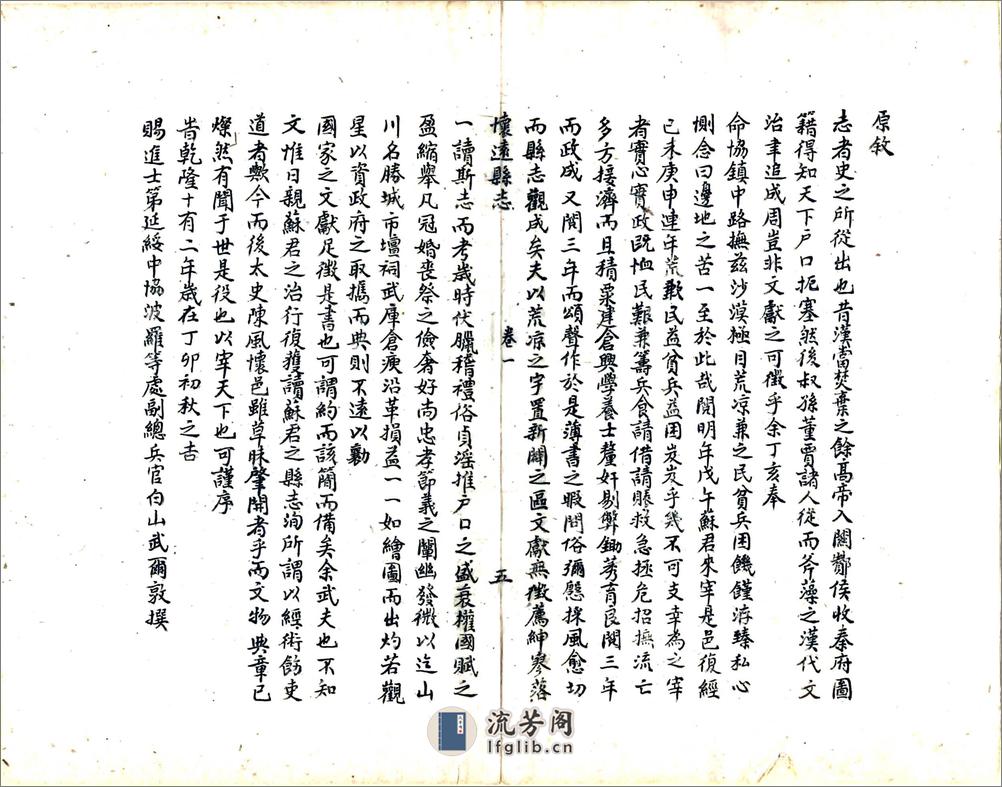 原敘
志者史之所從出也昔漢當焚棄之餘高帝入關酇侯收秦府圖
籍得知天下户口扼塞然後叔孫董賈諸人從而斧藻之漢代文
治聿追成周豈非文獻之可徵乎余丁亥奉
命協鎮中路撫兹沙漠極目荒凉兼之民貧兵困饑饉洊臻私心
惻念曰邊地之苦一至於此哉閱明年戊午蘇君來宰是邑復經
已未庚申連年荒歉民益貧兵益困岌岌乎幾不可支幸為之宰
者實心實政既恤民艱兼籌兵食請借請賑救急拯危招撫流亡
多方接濟而且積粟建倉興學養士釐奸剔弊鋤莠育良閱三年
而政成又閱三年而頌聲作於是薄書之暇問俗彌慇採風愈切
而縣志觀成矣夫以荒凉之字置新闢之區文獻無徵薦紳寥落
懷遠縣志
卷一
五
一讀斯志而考歲時伏臘稽禮俗貞滛推户口之盛衰權國賦之
盈縮舉凡冠婚喪祭之儉奢好尚忠孝節義之闡幽發微以迄山
川名勝城市壇祠武庫倉庾沿革損益一一如繪圖而出灼若觀
星以資政府之取攜而典則不遠以勷
國家之文獻足徵是書也可謂約而該簡而備矣余武夫也不知
文惟日親蘇君之治行復獲讀蘇君之縣志洵所謂以經術飭吏
道者歟今而後太史陳風懷邑雖草昧肇開者乎而文物典章已
燦然有聞于世是役也以宰天下也可謹序
旹乾隆十有二年歲在丁卯初秋之吉
賜進士第延綏中協波羅等處副總兵官白山武爾敦撰
流芳阁
lfglib.cn